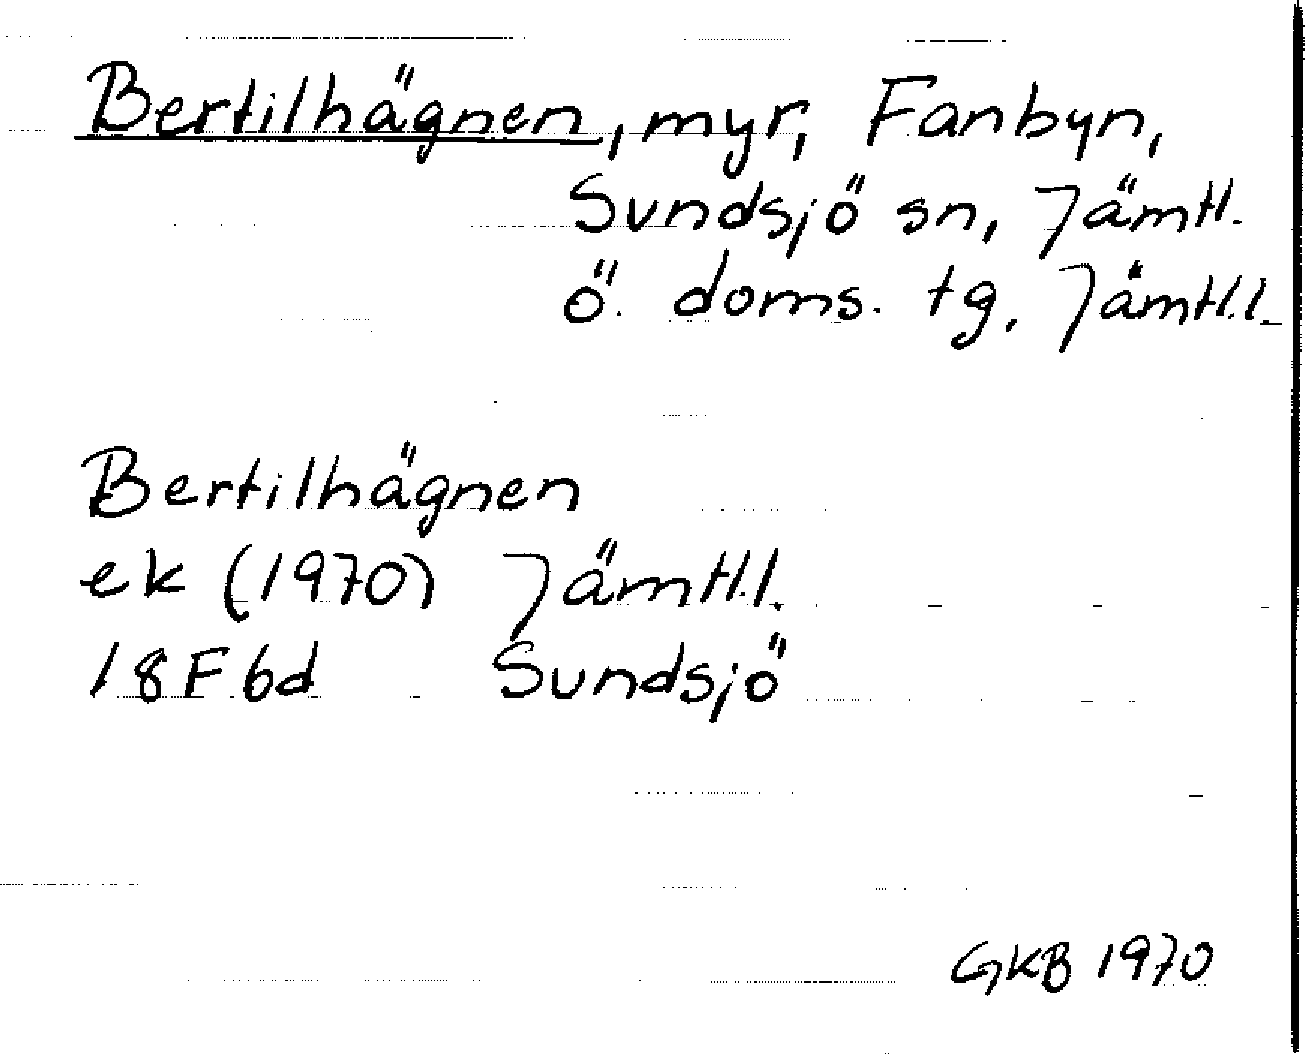 Bertilhägnen, myr, Fanbyn,
Sundsjö sn, Jämtl.
ö. doms. tg, Jämtl.l.
Bertilhägnen
ek (1970) Jämtl.l.
18F6d Sundsjö
GKB 1970